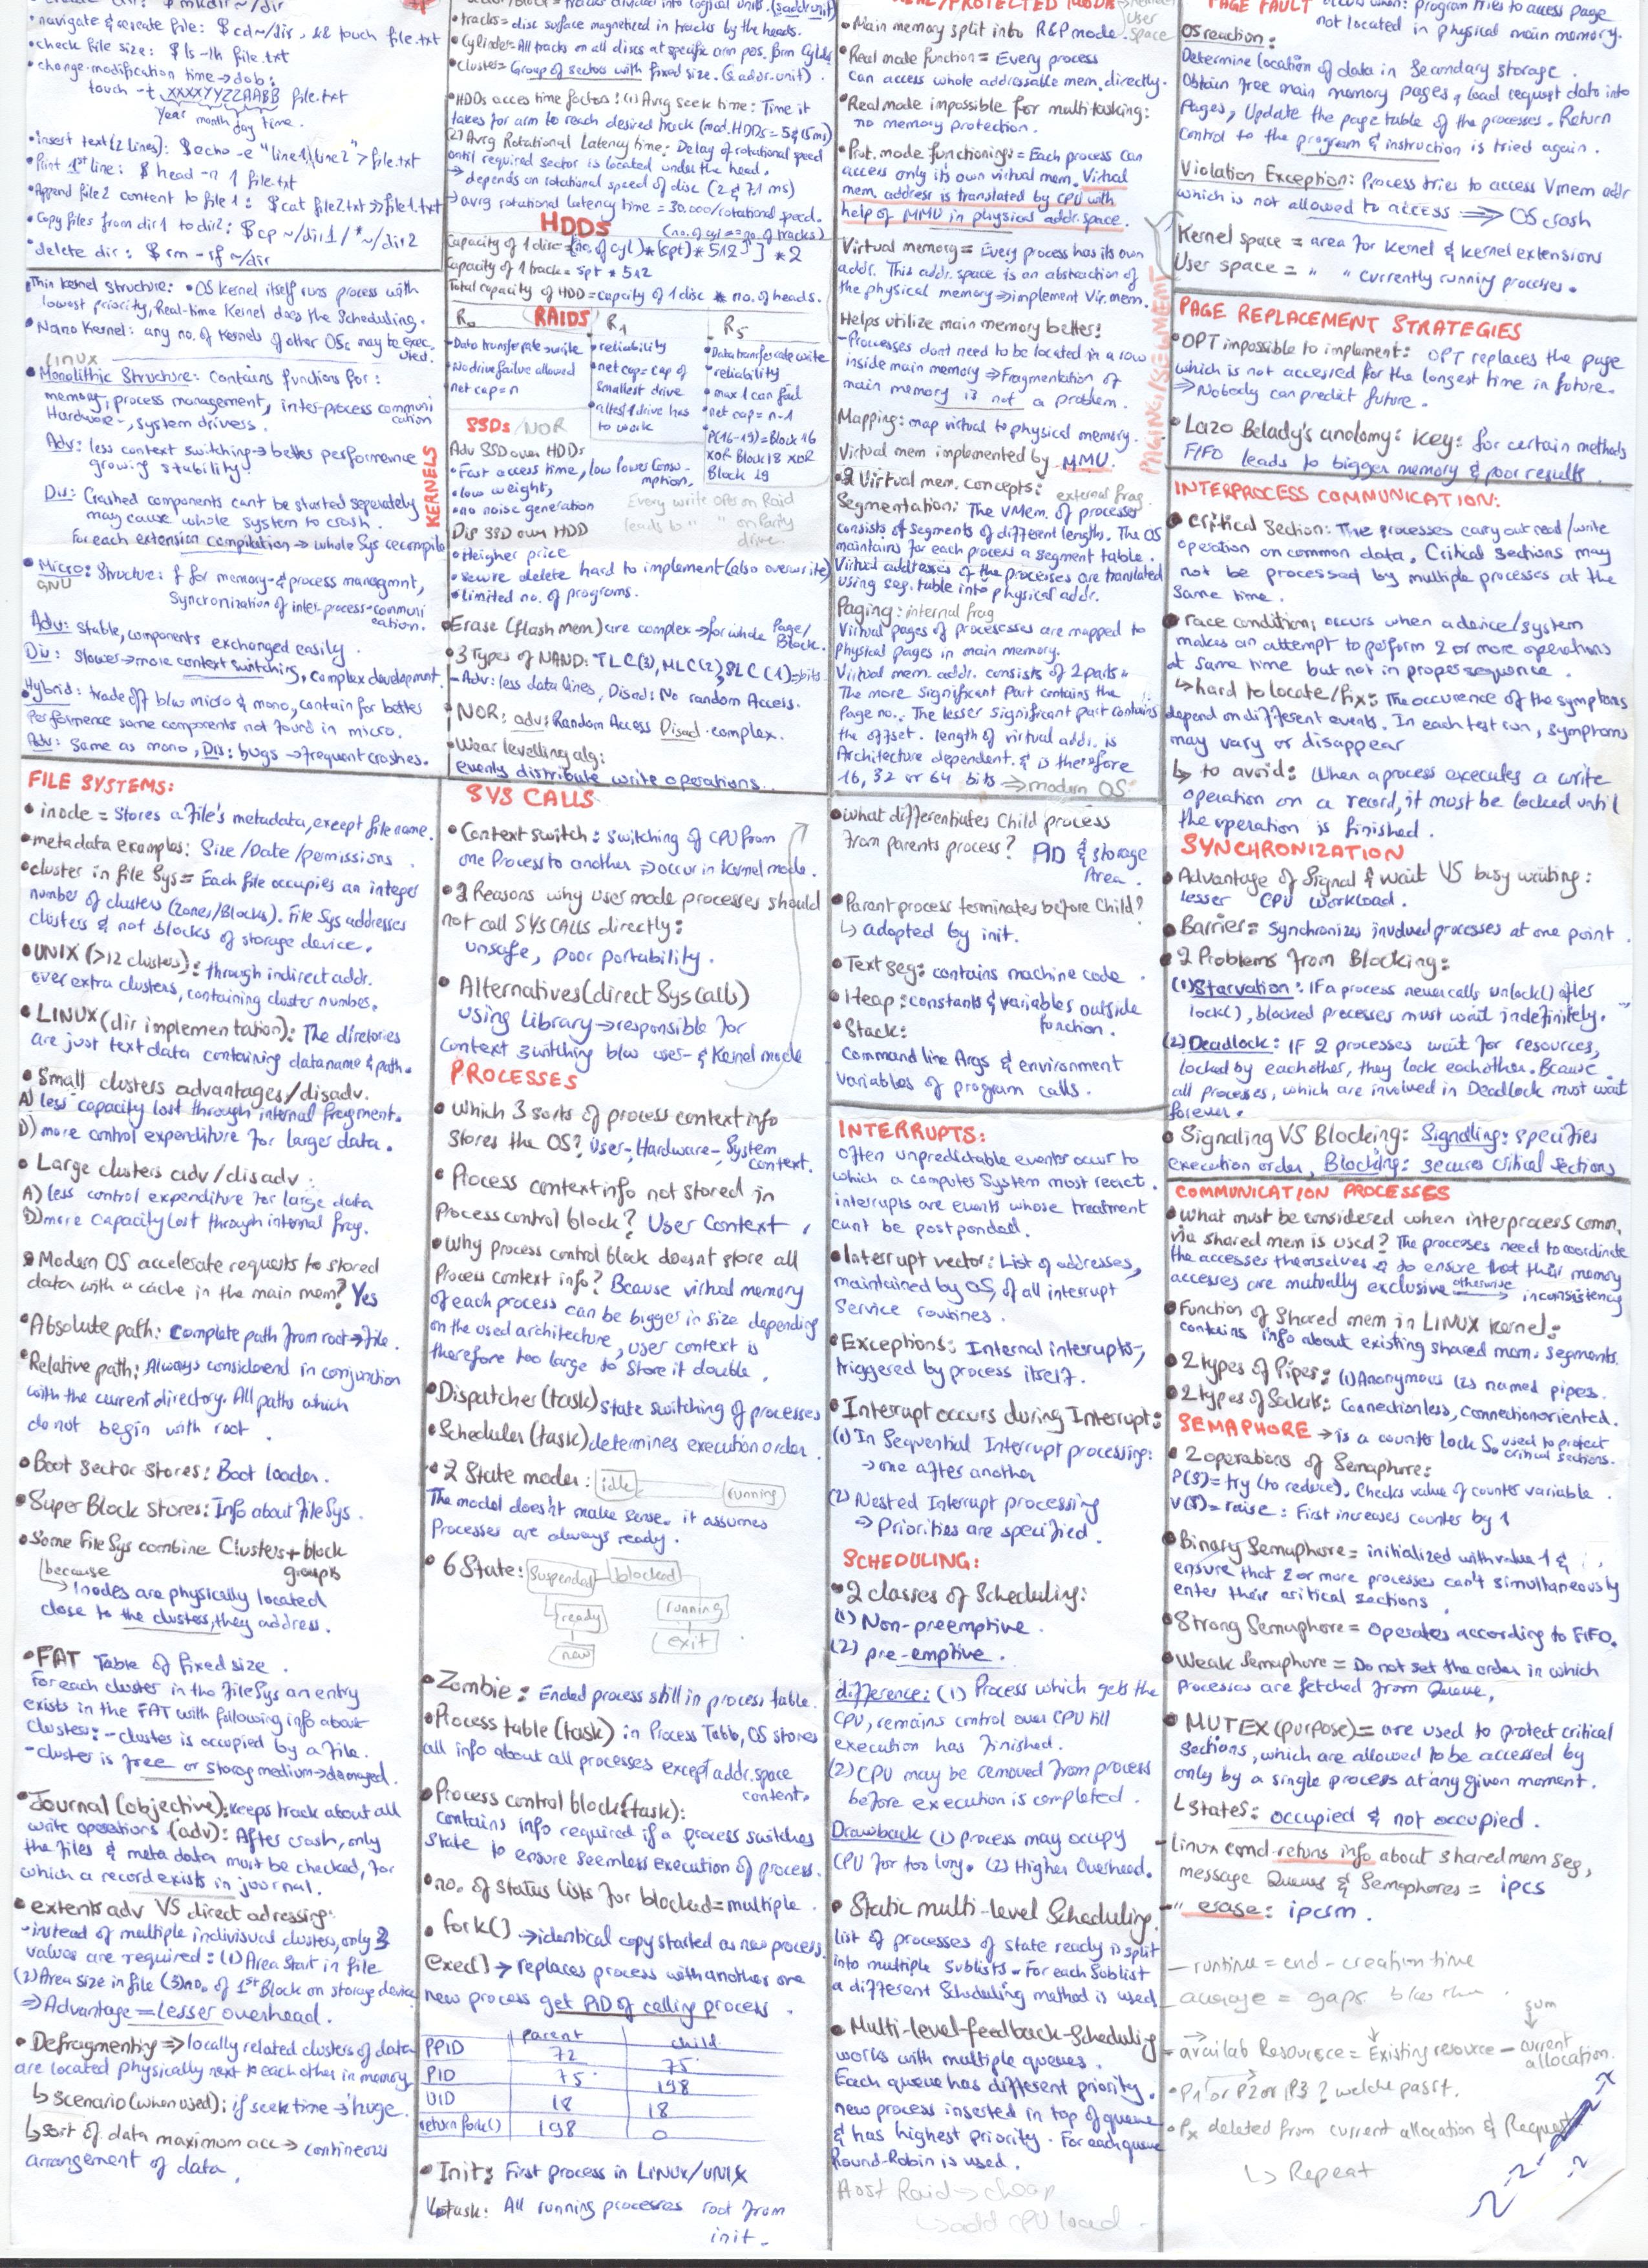 $mkdir ~/dir
• navigate & create file: $cd ~/dir, && touch file.txt
• check file size: $ls -lh file.txt
• change modification time → dob:
touch -t XXXXYYZZAABB file.txt
Year month day time.
• Insert text (2 lines): $echo -e "line1\line2" > file.txt
• Print 1st line: $ head -n 1 file.txt
• Append file2 content to file1: $cat file2.txt >> file1.txt
• Copy files from dir1 to dir2: $cp ~/dir1/* ~/dir2
• delete dir: $rm -rf ~/dir
Thin kernel structure: • OS kernel itself runs process with
lowest priority, Real-time Kernel does the scheduling.
• Nano Kernel: any no. of kernels of other OSs may be executed.
KERNELS
Linux
• Monolithic Structure: Contains functions for:
memory, process management, inter-process communication
Hardware-, system drivers.
Adv: less context switching → better performence
growing stability.
Dis: Crashed components cant be started seperately
may cause whole system to crash.
For each extension compilation → whole sys recompile
• Micro: Structure: f for memory- & process managmnt,
GNU
Syncronization of inter-process-communication.
Adv: stable, components exchanged easily.
Dis: slower → more context switching, complex development.
Hybrid: trade off b/w micro & mono, contain for better
performence some components not found in micro.
Adv: Same as mono, Dis: bugs → frequent crashes.
FILE SYSTEMS:
• inode = Stores a file's metadata, except file name.
• metadata examples: Size/Date/permissions.
• cluster in file sys = Each file occupies an integer
number of clusters (zones/Blocks). File sys addresses
clusters & not blocks of storage device.
• UNIX (>12 clusters): through indirect addr.
over extra clusters, containing cluster number.
• LINUX (dir implementation): The diretories
are just text data containing dataname & path.
• Small clusters advantages/disadv.
A) less capacity lost through internal fragment.
D) more control expenditure for larger data.
• Large clusters adv/disadv:
A) less control expenditure for large data
D) more capacity lost through internal frag.
• Modern OS accelerate requests to stored
data with a cache in the main mem? Yes
• Absolute path: complete path from root → file.
• Relative path: Always considerend in conjunction
with the current directory. All paths which
do not begin with root.
• Boot sector stores: Boot loader.
• Super Block stores: Info about file sys.
• Some file sys combine Clusters + block groups
because
→ Inodes are physically located
close to the clusters, they address.
• FAT Table of fixed size.
For each cluster in the filesys an entry
exists in the FAT with following info about
clusters: - cluster is occupied by a file.
- cluster is free or storag medium → damaged.
• Journal (objective): keeps track about all
write operations (adv): After crash, only
the files & meta data must be checked, for
which a record exists in journal.
• extents adv VS direct adressing:
- instead of multiple indivisual clusters, only 3
values are required: (1) Area start in file
(2) Area size in file (3) no. of 1st Block on storage device
⇒ Advantage = Lesser overhead.
• Defragmenting ⇒ locally related clusters of data
are located physically next to each other in memory
↳ scenario (when used): if seek time → huge.
↳ sort of data maximum acc → contineous
arrangement of data.
• tracks = disc surface magnetized in tracks by the heads.
• Cylinder = All tracks on all discs at specific arm pos. form Cylder
• cluster = Group of sectors with fixed size. (s. addr. unit).
• HDDs acces time factors: (1) Avrg seek time: Time it
takes for arm to reach desired track (mod. HDDs = 5 & 15 ms)
(2) Avrg Rotational Latency time: Delay of rotational speed
until required sector is located under the head.
→ depends on rotational speed of disc (2 & 7.1 ms)
→ avrg rotational latency time = 30.000/rotational speed.
HDDs
(no. of cyl == no. of tracks)
Capacity of 1 disc = [(no. of cyl) * (spt) * 512] * 2
Capacity of 1 track = spt * 512
Total capacity of HDD = capcity of 1 disc * no. of heads.
RAIDS
R0
- Data transferate write
- No drive failue allowed
net cap = n
R1
• reliability
• net cap = cap of
smallest drive
• atlest 1 drive has
to work
R5
• Data transferrate write
• reliability
• max 1 can fail
• net cap = n-1
P(16-19) = Block 16
XOR Block 18 XOR
Block 19
SSDs/NOR
Adv SSD over HDDs
• Fast access time, low power consumption.
• low weight,
• no noise generation
Every write oprs on Raid
leads to " " on parity
drive.
Dis SSD over HDD
• Heigher price
• secure delete hard to implement (also overwrite)
• limited no. of programs.
• Erase (flash mem) are complex → for whole Page/Block.
• 3 Types of NAND: TLC(3), MLC(2), SLC(1) = bits
- Adv: less data lines, Disad: No random Access.
• NOR: adv: Random Access Disad: complex.
• Wear levelling alg:
evenly distribute write operations.
SYS CALLS
• Context switch: switching of CPU from
one Process to another ⇒ occur in Kernel mode.
• 2 Reasons why user mode processes should
not call SYS CALLS directly:
unsafe, poor portability.
• Alternatives (direct Sys calls)
using Library → responsible for
context switching b/w user- & Kernel mode
PROCESSES
• Which 3 sorts of process context info
stores the OS? User-, Hardware-, System context.
• Process context info not stored in
Process control block? User Context.
• Why process control block doesnt store all
Process context info? Bcause virtual memory
of each process can be bigger in size depending
on the used architecture, user context is
therefore too large to store it double.
• Dispatcher (task) state switching of processes
• Scheduler (task) determines execution order.
• 2 State model: idle running
The model does'nt make sense. it assumes
Processes are always ready.
• 6 State: suspended blocked
ready running
new exit
• Zombie: Ended process still in process table.
• Process table (task) in Process Table, OS stores
all info about all processes except addr. space content.
• Process control block (task):
contains info required if a process switches
state to ensure seemless execution of process.
• no. of status lists for blocked = multiple.
• fork() → identical copy started as new process.
exec() → replaces process with another one
new process get PID of calling process.
parent child
PPID 72 75
PID 75 198
UID 18 18
return fork() 198 0
• Init: First process in LINUX/UNIX
↳ task: All running processes root from
init.
REAL/PROTECTED MODE → Kernel
User space
• Main memory split into R&P mode.
• Real mode function = Every process
can access whole addressable mem. directly.
• Real mode impossible for multitasking:
no memory protection.
• Prot. mode functioning: = Each process can
access only its own virtual mem. Virtual
mem. address is translated by CPU with
help of MMU in physical addr. space.
PAGING/SEGMENT
Virtual memory = Every process has its own
addr. This addr. space is an abstraction of
the physical memory ⇒ implement Vir. mem.
Helps utilize main memory better:
- Processes dont need to be located in a row
inside main memory ⇒ Fragmentation of
main memory is not a problem.
Mapping: map virtual to physical memory.
Virtual mem implemented by MMU.
• 2 Virtual mem. concepts:
external frag.
Segmentation: The VMem. of processer
consists of segments of different lengths. The OS
maintains for each process a segment table.
Virtual addresses of the processes are translated
using seg. table into physical addr.
Paging: internal frag
Virtual pages of procesesses are mapped to
Physical pages in main memory.
Virtual mem. addr. consists of 2 parts:
The more significant Part contains the
Page no.. The lesser significant part contains
the offset. length of virtual addr. is
Architecture dependent & is therefore
16, 32 or 64 bits → modern OS
• What differentiates Child process
from parents process? PID & storage
Area.
• Parent process terminates before child?
↳ adopted by init.
• Text seg: contains machine code.
• Heap: constants & variables outside
function.
• Stack:
Command line Args & environment
variables of program calls.
INTERRUPTS:
Often unpredictable events occur to
which a computer System most react.
interrupts are events whose treatment
cant be postponded.
• Interrupt vector: List of addresses,
maintained by OS, of all interrupt
Service routines.
• Exceptions: Internal interrupts,
triggered by process itself.
• Interrupt occurs during Interrupt:
(1) In Sequential Interrupt processing:
→ one after another
(2) Nested Interrupt processing
→ Priorities are specified.
SCHEDULING:
• 2 classes of Scheduling:
(1) Non-preemptive.
(2) pre-emptive.
difference: (1) Process which gets the
CPU, remains control over CPU till
execution has finished.
(2) CPU may be removed from process
before execution is completed.
Drawback (1) process may occupy
CPU for too long. (2) Higher Overhead.
• Static multi-level Scheduling.
list of processes of state ready is split
into multiple sublists - For each sublist
a different scheduling method is used
• Multi-level-feedback-scheduling
works with multiple queues.
Each queue has different priority.
new process inserted in top of queue
& has highest priority. For each queue
Round-Robin is used.
Host Raid → cheap
↳ add CPU load.
PAGE FAULT occurs when: program tries to access page
not located in physical main memory.
OS reaction:
Determine location of data in secondary storage.
Obtain free main memory pages, load request data into
Pages, Update the page table of the processes. Return
control to the program & instruction is tried again.
Violation Exception: Process tries to access Vmem addr
which is not allowed to access ⇒ OS crash
Kernel space = area for kernel & kernel extensions
User space = " " currently running processes.
PAGE REPLACEMENT STRATEGIES
• OPT impossible to implement: OPT replaces the page
which is not accessed for the longest time in future.
→ Nobody can predict future.
• Lazo Belady's anolomy: Key: for certain methods
FIFO leads to bigger memory & poor results.
INTERPROCESS COMMUNICATION:
• Critical Section: The processes carry out read/write
operation on common data. Critical sections may
not be processed by multiple processes at the
same time.
• race condition: occurs when a device/system
makes an attempt to perform 2 or more operations
at same time but not in proper sequence.
↳ hard to locate/fix: The occurence of the symptoms
depend on different events. In each test run, symptoms
may vary or disappear
↳ to avoid: When a process executes a write
operation on a record, it must be locked until
the operation is finished.
SYNCHRONIZATION
• Advantage of Signal & wait VS busy waiting:
lesser CPU workload.
• Barrier = synchronizes involved processes at one point.
• 2 Problems from Blocking:
(1) Starvation: IF a process never calls unlock() after
lock(), blocked processes must wait indefinitely.
(2) Deadlock: IF 2 processes wait for resources,
locked by eachother, they lock eachother. Bcause.
all processes, which are involved in Deadlock must wait
forever.
• Signaling VS Blocking: Signalling: specifies
execution order, Blocking: secures critical sections
COMMUNICATION PROCESSES
• What must be considered when interprocess comm.
via shared mem is used? The processes need to coordinate
the accesses themselves & to ensure that their memory
accesses are mutually exclusive otherwise → inconsistency
• Function of Shared mem in LINUX kernel =
contains info about existing shared mem. segments.
• 2 types of Pipes: (1) Anonymous (2) named pipes.
• 2 types of Sockets: Connectionless, connection oriented.
SEMAPHORE → is a counter lock S. used to protect
critical sections.
• 2 operations of Semaphore:
P(S) = try (to reduce). Checks value of counter variable.
V(S) = raise: First increases counter by 1
• Binary Semaphore = initialized with value 1 &
ensure that 2 or more processes can't simultaneously
enter their critical sections.
• Strong Semaphore = Operates according to FIFO.
• Weak Semaphore = Do not set the order in which
Processes are fetched from Queue.
• MUTEX (purpose) = are used to protect critical
sections, which are allowed to be accessed by
only by a single process at any given moment.
↳ States: occupied & not occupied.
- Linux cmd returns info about shared mem seg,
message Queues & Semaphores = ipcs
- " erase: ipcrm.
- runtime = end - creation time
- average = gaps b/w the
- availab Resource = Existing resource - sum current
allocation.
• P1 or P2 or P3? welche passt.
• Px deleted from current allocation & Request
↳ Repeat